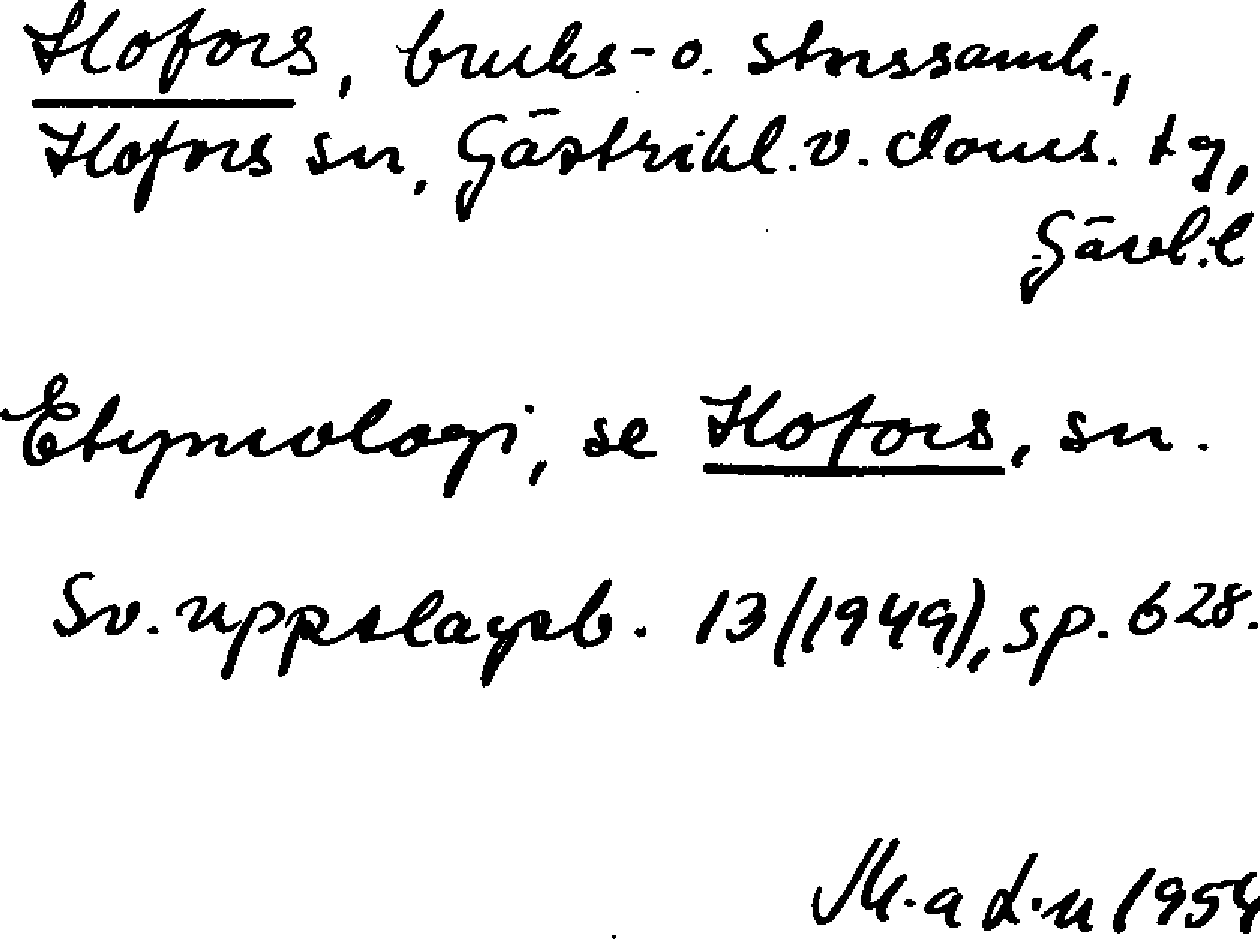 Hofors, bruks- o. stnssamh.,
Hofors sn, Gästrikl. v. doms. tg,
Gävl. l
Etymologi, se Hofors, sn.
Sv. uppslagsb. 13 (1949), sp. 628.
1954